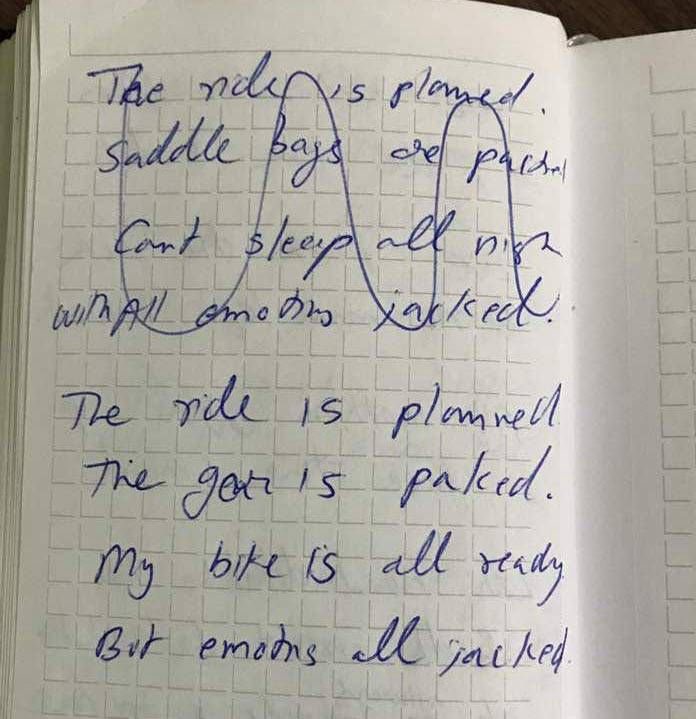 The ride is planned.
Saddle bags are packed
Cant sleep all nigh
with All emotins jacked.
The ride is planned
The gear is paked.
My bike is all ready
But emotns all jacked.